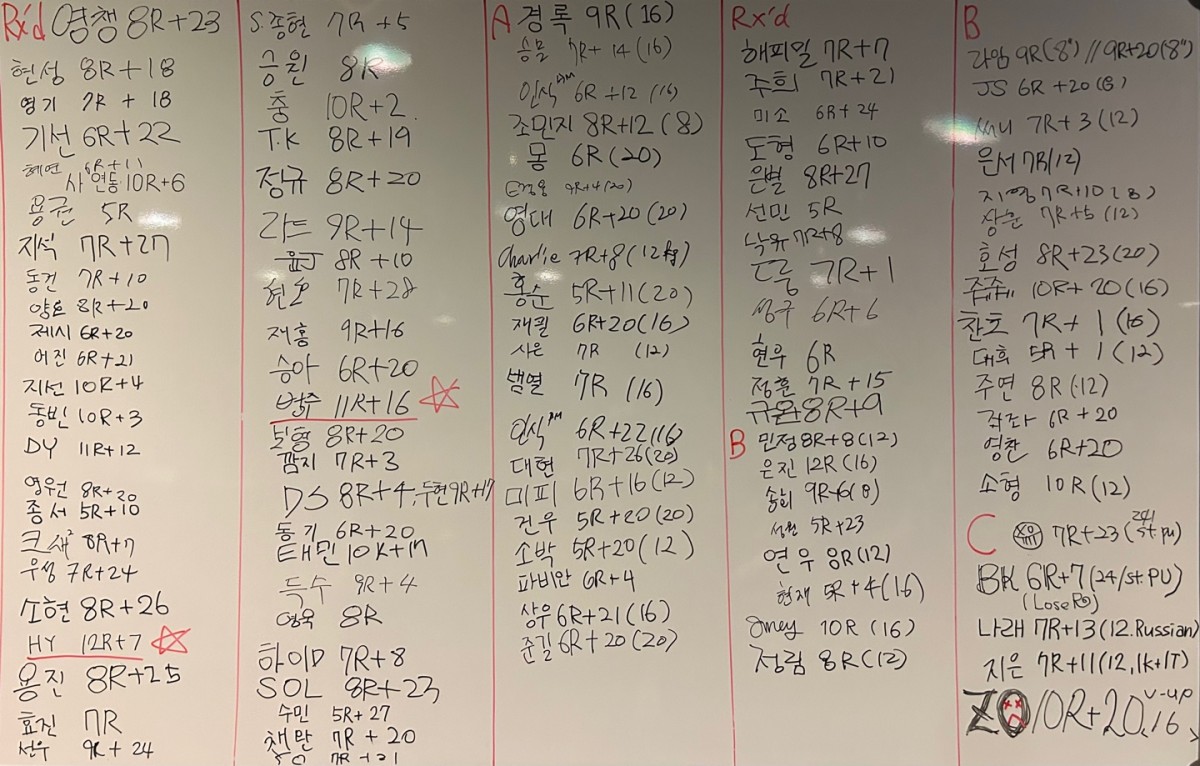 Rx'd 영챙 8R+23
현성 8R+18
영기 7R + 18
기선 6R+22
혜연 6R+11
사 연등 10R+6
용권 5R
지석 7R+27
동건 7R+10
양요 8R+20
제시 6R+20
어진 6R+21
지선 10R+4
동빈 10R+3
DY 11R+12
영우선 8R+20
종서 5R+10
크새 8R+7
우성 7R+24
소현 8R+26
HY 12R+7
용진 8R+25
효진 7R
선우 9R+24
S.종현 7R+5
승원 8R
충 10R+2
T.K 8R+19
정규 8R+20
라드 9R+14
윤J 8R+10
현호 7R+28
재홍 9R+16
승아 6R+20
범주 11R+16
보형 8R+20
깜지 7R+3
DS 8R+4, 두현 9R+17
동기 6R+20
태민 10R+17
득수 9R+4
영욱 8R
하이D 7R+8
SOL 8R+23
수민 5R+27
채만 7R+20
7R+21
A 경록 9R(16)
승모 7R+14(16)
인식 AM 6R+12 (16)
조민지 8R+12(8)
몽 6R(20)
9R+4(20)
영대 6R+20(20)
Charlie 7R+8(12kg)
홍순 5R+11(20)
재필 6R+20(16)
사은 7R (12)
범열 7R (16)
인식 PM 6R+22(16)
대현 7R+26(20)
미피 6R+16(12)
건우 5R+20(20)
소박 5R+20(12)
파비안 6R+4
상우 6R+21(16)
준길 6R+20(20)
Rx'd
해피밀 7R+7
주희 7R+21
미소 6R+24
도형 6R+10
은별 8R+27
선민 5R
낙유 7R+8
드롱 7R+1
성구 6R+6
현우 6R
정훈 7R+15
규완 8R+9
B 민정 8R+8(12)
은진 12R(16)
송희 9R+6(8)
성원 5R+23
연우 8R(12)
현재 5R+4(16)
Jmey 10R (16)
정림 8R(12)
B
라암 9R(8") // 9R+20(8")
JS 6R+20(8)
써니 7R+3(12)
은서 7R(12)
지영 7R+10(8)
장훈 7R+5(12)
호성 8R+23(20)
쥬쥬 10R+20(16)
찬호 7R+1(16)
대혁 5R+1(12)
주연 8R(12)
좌좌 6R+20
영찬 6R+20
소형 10R(12)
C 7R+23(24/st.pu)
BK 6R+7(24/st.PU)
(LoseR)
나래 7R+13(12.Russian)
지은 7R+11(12,1k+1T)
ZO 10R+20(v-up 16)